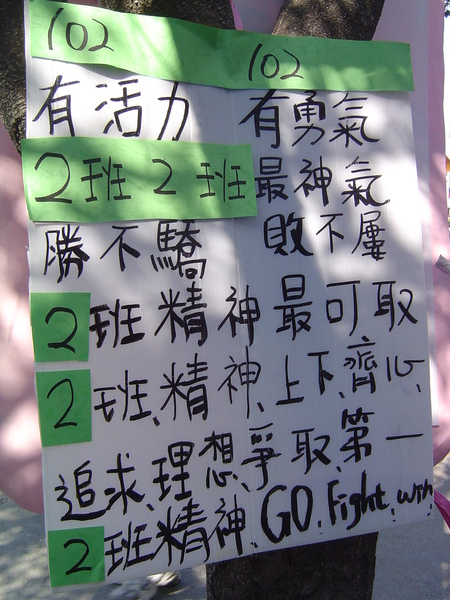 102 102
有活力 有勇氣
2班2班最神氣
勝不驕 敗不屢
2班精神最可取
2班、精神、上下、齊心、
追求、理想、爭取、第一
2班精神、GO、Fight、win